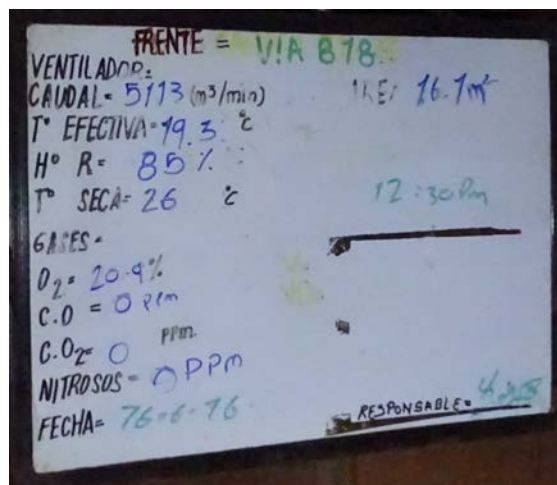 FRENTE = VIA B18
VENTILADOR:
CAUDAL = 5113 (m³/min)
AREA 16.1m²
Tº EFECTIVA = 19.3 ºC
Hº R = 85 %
Tº SECA = 26 ºC
12:30 Pm
GASES =
O2 = 20.9%
C.O = 0 PPm
C.O2 = 0 PPm
NITROSOS = 0 PPM
FECHA = 16-6-16
RESPONSABLE =